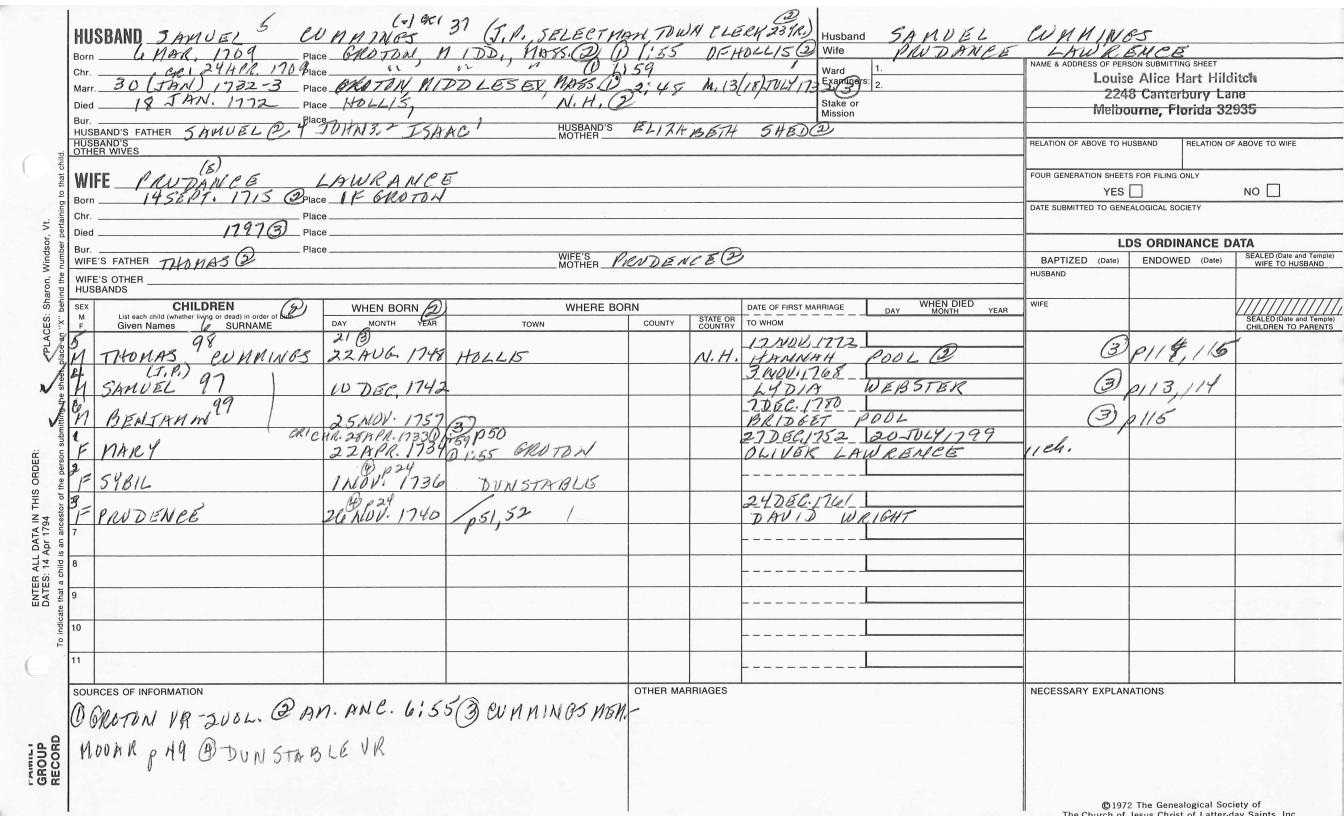 HUSBAND SAMUEL 5 CUMMINGS 37 (J.P., SELECTMAN, TOWN CLERK 23 YR.) (2)
Born 6 MAR. 1709 Place GROTON, MIDD., MASS. (2), (1) 1:55 OF HOLLIS (2)
Chr. 24 APR. 1709 Place " " " (1) 1:59
Marr. 30 (JAN) 1732-3 Place GROTON, MIDDLESEX, MASS (1) 2:45 M. 13/(18)JULY 173
Died 18 JAN. 1772 Place HOLLIS, N.H. (2)
Bur. Place
HUSBAND'S FATHER SAMUEL (2) 4 JOHN 3,2 ISAAC 1 HUSBAND'S MOTHER ELIZABETH SHED (2)
HUSBAND'S OTHER WIVES
(S)
WIFE PRUDANCE LAWRANCE
Born 14 SEPT. 1715 (2) Place OF GROTON
Chr. Place
Died 1797 (3) Place
Bur. Place
WIFE'S FATHER THOMAS (2) WIFE'S MOTHER PRUDENCE (2)
WIFE'S OTHER HUSBANDS
Husband SAMUEL CUMMINGS
Wife PRUDANCE LAWRENCE
Ward 1.
Examiners: 2.
Stake or Mission
NAME & ADDRESS OF PERSON SUBMITTING SHEET
Louise Alice Hart Hilditch
2248 Canterbury Lane
Melbourne, Florida 32935
RELATION OF ABOVE TO HUSBAND RELATION OF ABOVE TO WIFE
FOUR GENERATION SHEETS FOR FILING ONLY
YES NO
DATE SUBMITTED TO GENEALOGICAL SOCIETY
LDS ORDINANCE DATA
BAPTIZED (Date) ENDOWED (Date) SEALED (Date and Temple) WIFE TO HUSBAND
HUSBAND
WIFE
SEALED (Date and Temple) CHILDREN TO PARENTS
SEX M F CHILDREN WHEN BORN (2) WHERE BORN DATE OF FIRST MARRIAGE WHEN DIED
List each child (whether living or dead) in order of birth
Given Names SURNAME DAY MONTH YEAR TOWN COUNTY STATE OR COUNTRY TO WHOM DAY MONTH YEAR
5 98 21 (3) 17 NOV. 1772
M THOMAS CUMMINGS 22 AUG. 1748 HOLLIS N.H. HANNAH POOL (2) (3) p114, 115
4 (J.P.) 3 NOV. 1768
M SAMUEL 97 10 DEC. 1742 LYDIA WEBSTER (3) p113, 114
6 7 DEC. 1780
M BENJAMIN 99 25 NOV. 1757 BRIDGET POOL (3) p115
1 CHR. 28 APR. 1733 (1) 1:59 (3) p50 27 DEC. 1752 20 JULY 1799
F MARY 22 APR. 1734 (1) 1:55 GROTON OLIVER LAWRENCE 11 ch.
2 (4) p24
F SYBIL 1 NOV. 1736 DUNSTABLE
3 (4) p24 24 DEC. 1761
F PRUDENCE 26 NOV. 1740 p51, 52 DAVID WRIGHT
7
8
9
10
11
SOURCES OF INFORMATION
(1) GROTON VR-2VOL. (2) AM. ANC. 6:55 (3) CUMMINGS MEM.-
MOOAR p 49 (4) DUNSTABLE VR
OTHER MARRIAGES
NECESSARY EXPLANATIONS
©1972 The Genealogical Society of
The Church of Jesus Christ of Latter-day Saints, Inc.
ENTER ALL DATA IN THIS ORDER:
DATES: 14 Apr 1794
PLACES: Sharon, Windsor, Vt.
To indicate that a child is an ancestor of the person submitting the sheet, place an "X" behind the number pertaining to that child.
FAMILY GROUP RECORD